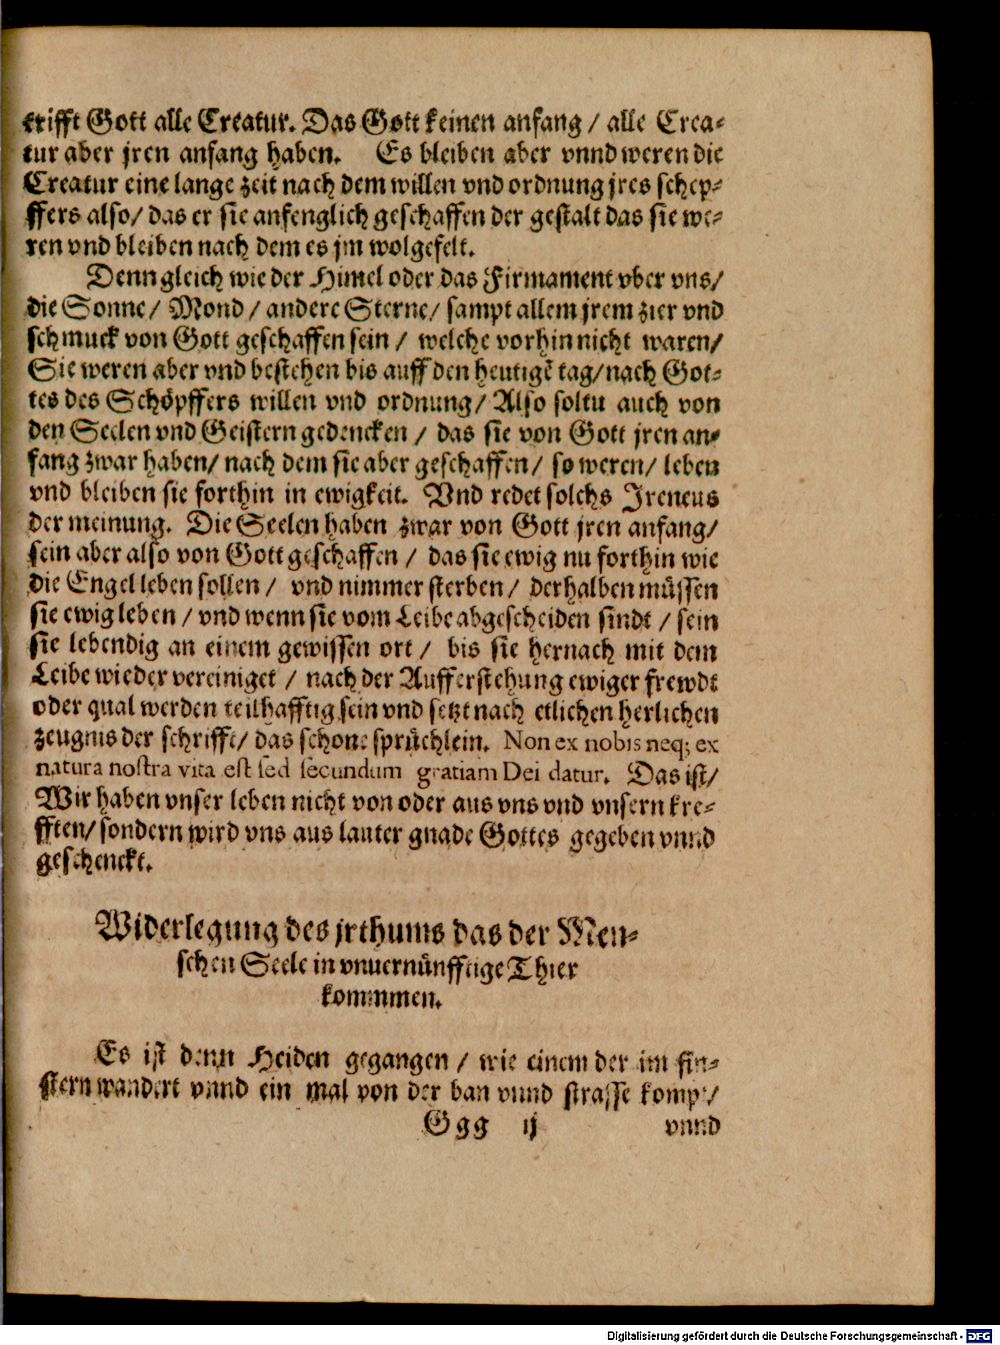 trifft Gott alle Creatur. Das Gott keinen anfang / alle Crea-
tur aber jren anfang haben. Es bleiben aber vnnd weren die
Creatur eine lange zeit nach dem willen vnd ordnung jres schep-
ffers also / das er sie anfenglich geschaffen der gestalt das sie we-
ren vnd bleiben nach dem es jm wolgefelt.
Denn gleich wie der Himel oder das Firmament vber vns /
die Sonne / Mond / andere Sterne / sampt allem jrem zier vnd
schmuck von Gott geschaffen sein / welche vorhin nicht waren /
Sie weren aber vnd bestehen bis auff den heutigẽ tag / nach Got-
tes des Schöpffers willen vnd ordnung / Also soltu auch von
den Seelen vnd Geistern gedencken / das sie von Gott jren an-
fang zwar haben / nach dem sie aber geschaffen / so weren / leben
vnd bleiben sie forthin in ewigkeit. Vnd redet solchs Jreneus
der meinung. Die Seelen haben zwar von Gott jren anfang /
sein aber also von Gott geschaffen / das sie ewig nu forthin wie
die Engel leben sollen / vnd nimmer sterben / derhalben müssen
sie ewig leben / vnd wenn sie vom Leibe abgescheiden sindt / sein
sie lebendig an einem gewissen ort / bis sie hernach mit dem
Leibe wieder vereiniget / nach der Aufferstehung ewiger frewdt
oder qual werden teilhafftig sein vnd setzt nach etlichen herlichen
zeugnis der schrifft / das schone sprüchlein. Non ex nobis neq; ex
natura nostra vita est sed secundum gratiam Dei datur. Das ist /
Wir haben vnser leben nicht von oder aus vns vnd vnsern kre-
fften / sondern wird vns aus lauter gnade Gottes gegeben vnnd
geschenckt.
Widerlegung des jrthums das der Men-
schen Seele in vnuernünfftige Thier
kommmen.
Es ist denn Heiden gegangen / wie einem der im fin-
stern wandert vnnd ein mal von der ban vnnd strasse kompt /
Ggg ij vnnd
Digitalisierung gefördert durch die Deutsche Forschungsgemeinschaft - DFG